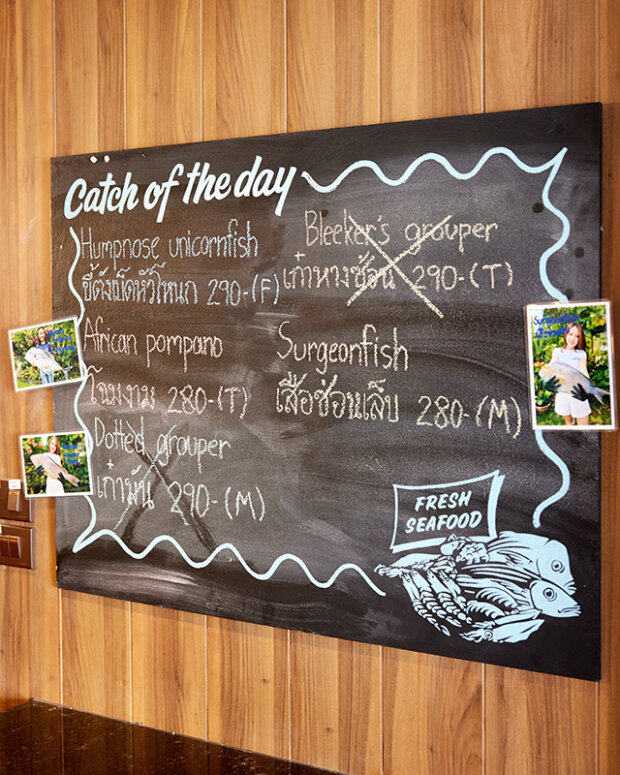 Catch of the day
Humpnose unicornfish
ขี้ตังเบ็ดหัวโหนก 290-(F)
African pompano
โฉมงาม 280-(T)
Dotted grouper
เก๋ามัน 290-(M)
Bleeker's grouper
เก๋าหางซ้อน 290-(T)
Surgeonfish
เสือซ่อนเล็บ 280-(M)
Surgeonfish
FRESH
SEAFOOD